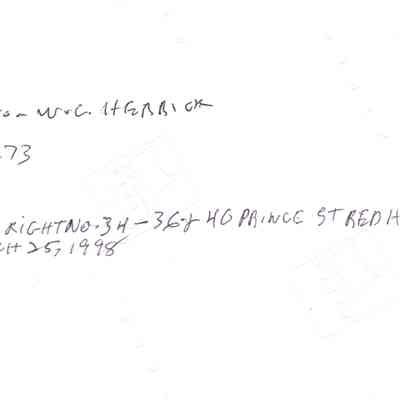 W.C. HERRICK
73
RIGHT NO. 34-36-& 40 PRINCE ST RED H
CH 25, 1998